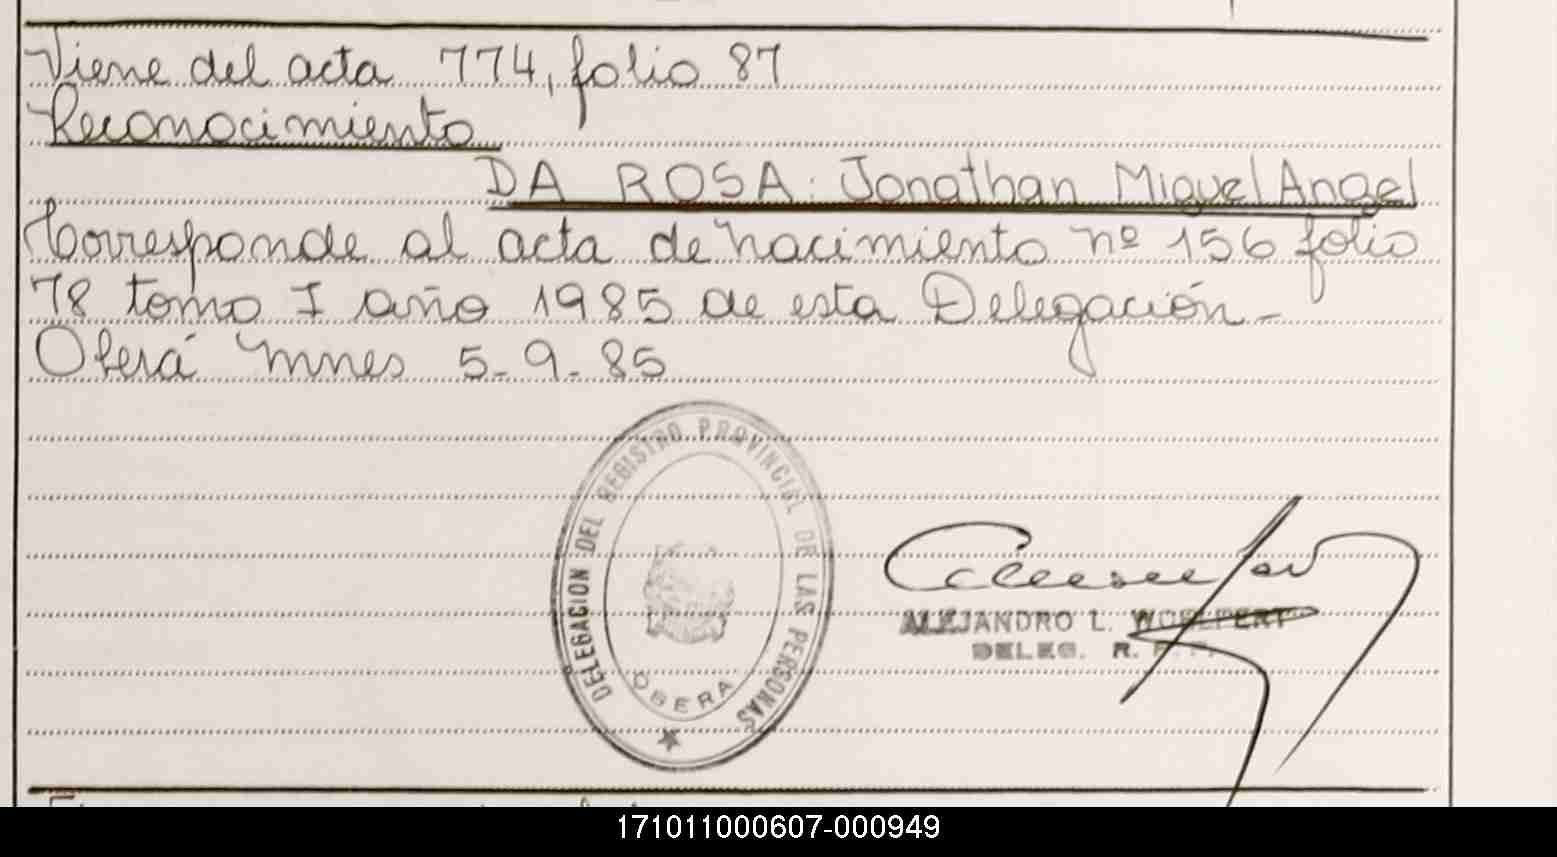 Viene del acta 774, folio 87
Reconocimiento
DA ROSA: Jonathan Miguel Angel
Corresponde al acta de nacimiento nº 156 folio
78 tomo I año 1985 de esta Delegación-
Oberá Mnes 5-9-85
DELEGACION DEL REGISTRO PROVINCIAL DE LAS PERSONAS
OBERA
ALEJANDRO L. WOELPERT
DELEG. R.
171011000607-000949